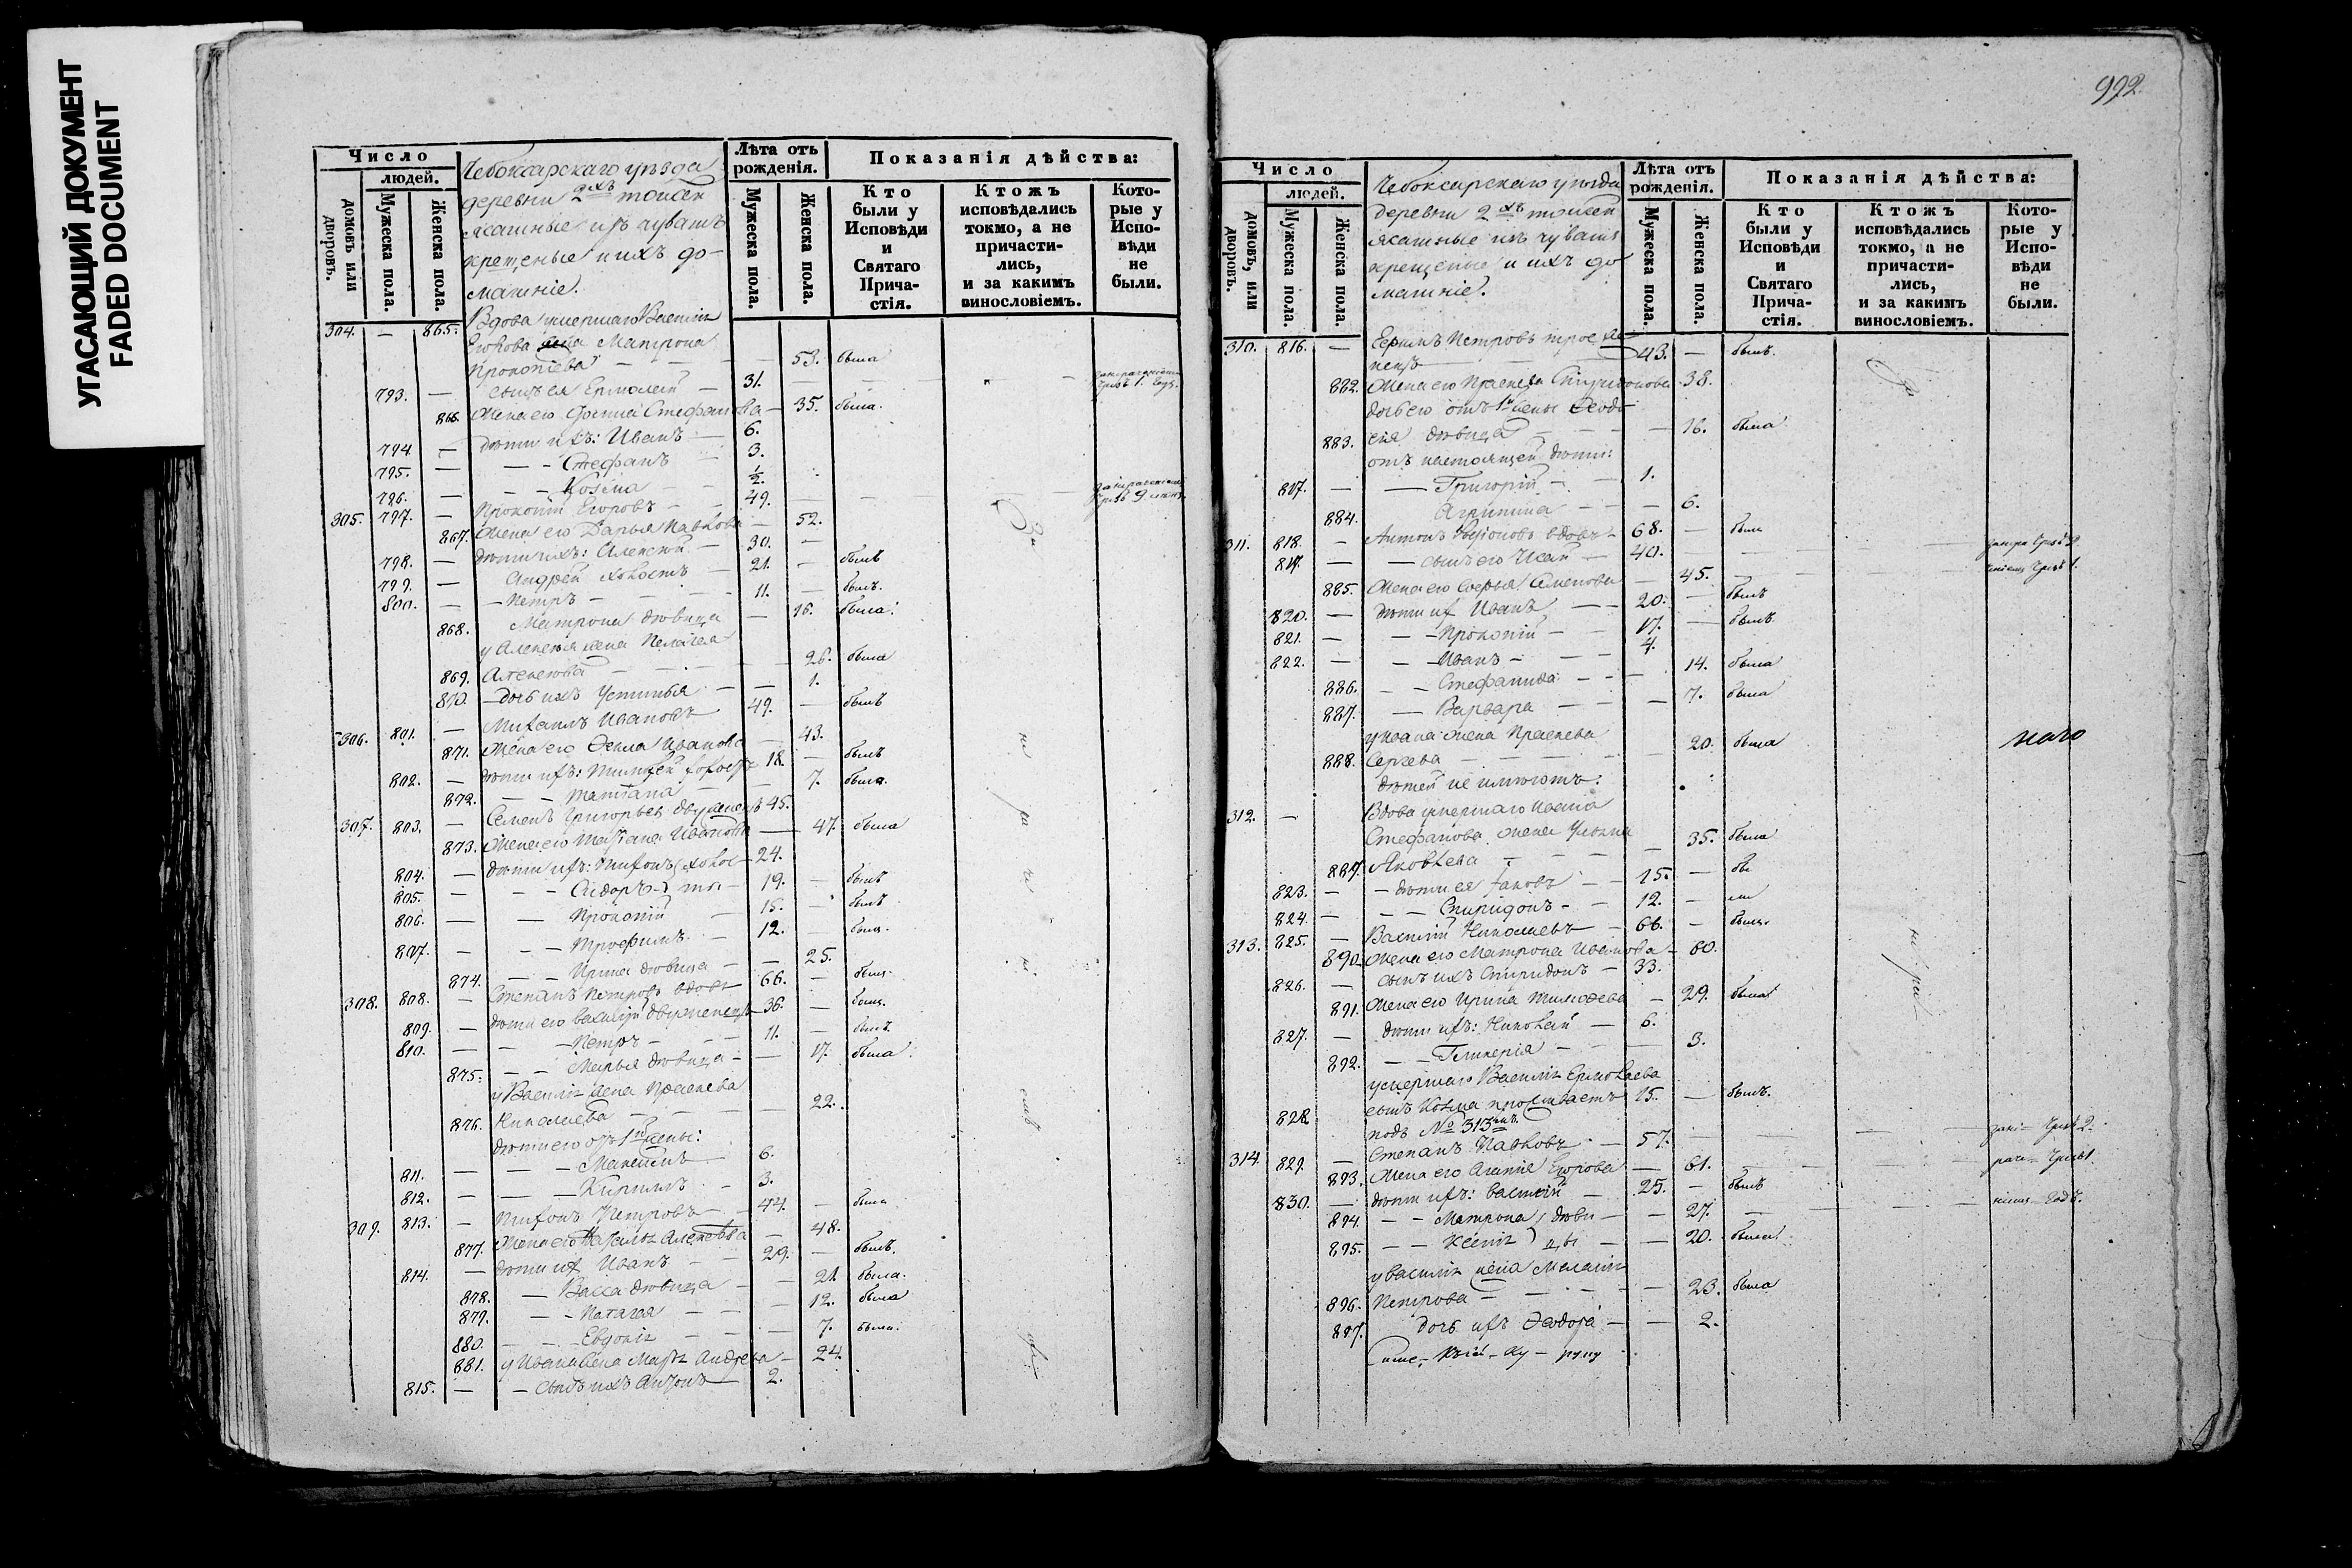 УГАСАЮЩИЙ ДОКУМЕНТ
FADED DOCUMENT
Число
людей.
домовъ или дворовъ.
Мужеска пола.
Женска пола.
Чебоксарскаго уѣзда
деревни 2хъ
ясашные изъ чувашъ
крещеные и ихъ до-
машніе.
Лѣта отъ рожденія.
Мужеска пола.
Женска пола.
Показанія дѣйства:
Кто были у Исповѣди и Святаго Прича- стія.
Ктожъ исповѣдались токмо, а не причасти- лись, и за какимъ винословіемъ.
Кото- рые у Испо- вѣди не были.
304. — 865. Вдова умершаго Василія
Егорова Матрона
Прокопіева — 53. была
793. — сынъ ея Ермолай — 31.
866. Жена его Стефанова — 35. была.
794 — дѣти ихъ: Иванъ — 6.
795. — Стефанъ 3.
796. — Козма — ½.
305. 797. — Прокопій Егоровъ — 49.
867. Жена его Дарья Павлова — 52.
798. — дѣти ихъ: Алексѣй — 30. —
799. — Андрей холостъ — 21. — былъ
800. — Петръ — 11. — былъ.
868. Матрона дѣвица — 16. была.
у Алексѣя жена Пелагея
869. Алексѣева — 26. была
870. дочь ихъ Устинья — 1.
306. 801. — Михаилъ Ивановъ 49. — былъ
871. Жена его Ѳекла Иванова — 43.
802. — дѣти ихъ: Тимоѳей холостъ 18. — былъ
872. — Татіана — 7. была.
307. 803. — Семенъ Григорьевъ двуженецъ 45.
873. Жена его Татіана Иванова — 47. была
804. — дѣти ихъ: холос- 24.
805. — Сидоръ ты — 19. — былъ
806. — Прокопій 15. — былъ
807. — Трофимъ — 12. былъ.
874. — Ирина дѣвица — 25.
308. 808. — Степанъ Петровъ вдовъ 66. — былъ
809. — дѣти его Василій двуженецъ 36. — былъ.
810. — Петръ — 11. — былъ.
875. — Марья дѣвица — 17. была.
у Василія жена Праскева
876. Николаева — 22.
дѣти его отъ 1й жены:
811. — Максимъ 6.
812. — Кирилъ — 3.
309. 813. — Петровъ — 44. — былъ
877. Жена его Наталья Алексѣева — 48.
814. — дѣти ихъ Иванъ — 29. — былъ.
878. — Васса дѣвица — 21. была.
879. — Наталья — 12. была
880. — Евдокія — 7. была.
881. у Ивана жена Марья Андреева — 24.
815. — сынъ ихъ Антонъ 2.
992
Число
людей.
домовъ, или дворовъ.
Мужеска пола.
Женска пола.
Чебоксарскаго уѣзда
деревни 2хъ
ясашные изъ чувашъ
крещеные и ихъ до
машніе.
Лѣта отъ рожденія.
Мужеска пола.
Женска пола.
Показанія дѣйства:
Кто были у Исповѣди и Святаго Прича- стія.
Ктожъ исповѣдались токмо, а не причасти- лись, и за какимъ винословіемъ.
Кото- рые у Испо- вѣди не были.
310. 816. — Петровъ троеже
нецъ 43. — былъ.
882. Жена его Праскева Спиридонова 38.
дочь его отъ 1й жены Ѳеодо
883. сія дѣвица — 16. была
отъ настоящей дѣти:
817. — Григорій — 1.
884. Агрипина — 6.
311. 818. — Антонъ вдовъ 68. — былъ
819. — сынъ его Исай — 40. —
885. Жена его Софья Семенова — 45. —
820. — дѣти ихъ Иванъ — 20. — былъ
821. — Прокопій — 17. — былъ
822. — Иванъ — 4.
886. — Стефанида — 14. была
887. — Варвара — 7. была
у Ивана жена Праскева
888. Сергева — 20. была
дѣтей не имѣютъ:
мало
312. — Вдова умершаго Ивана
Стефанова жена Ульяна
889. Яковлева — 35. была
823. — дѣти ея Іаковъ — 15. — бы
824. — Спиридонъ — 12. — ли
313. 825. — Василій Николаевъ — 66. — былъ.
890. Жена его Матрона Иванова — 60.
826. — сынъ ихъ Спиридонъ — 33.
891. Жена его Ирина Тимоѳеева — 29. была
827. — дѣти ихъ: Николай — 6.
892. — Гликерія — 3.
умершаго Василія Ермолаева
828. сынъ Козма проживаетъ 15. — былъ.
подъ № 313мъ.
314. 829. — Степанъ Павловъ — 57.
893. Жена его Агапія Егорова — 61.
830. — дѣти ихъ: Василій — 25. — былъ
894. — Матрона дѣви — 27.
895. — Ксенія цы — 20. была
у Василія жена Меланія
896. Петрова — 23. была
897. дочь ихъ Ѳеодора — 2.